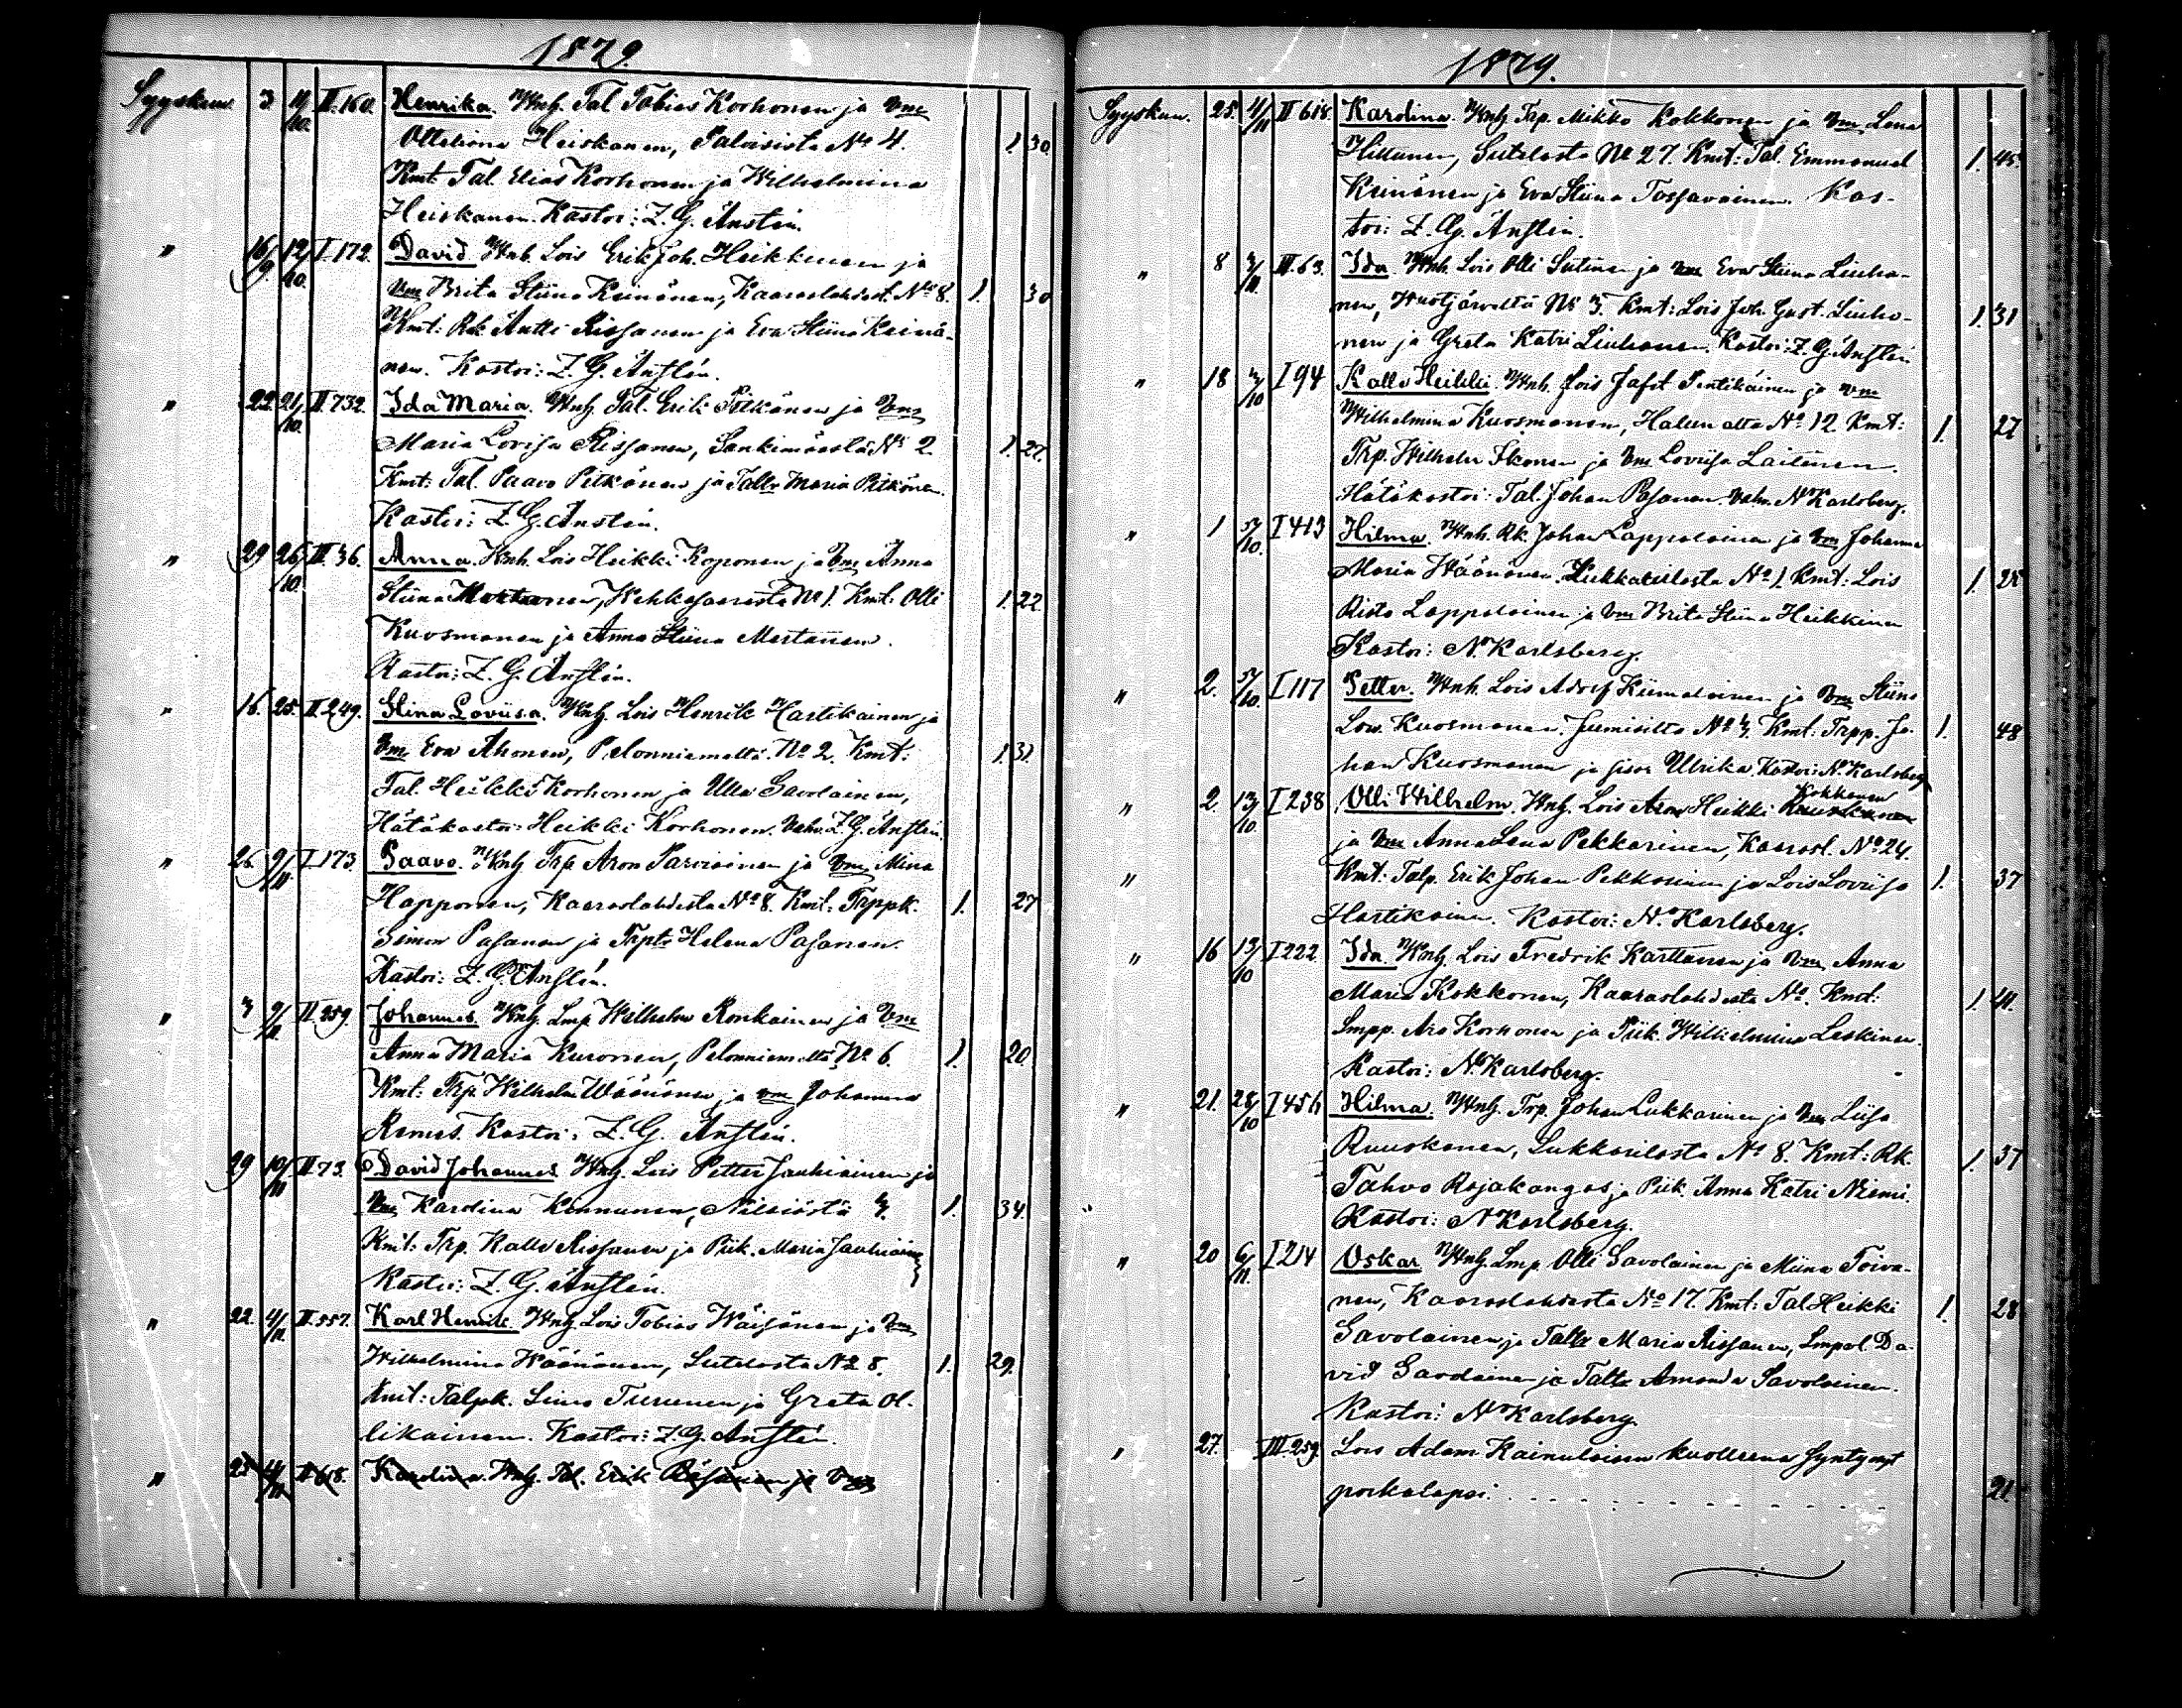 1879.
Syyskuu 3 19/10. II.160. Henrika. Wnh. Tal Tobias Korhonen ja Vmo
Heiskanen, Paloisista No 4. 1. 30.
Kmt. Tal. Elias Korhonen ja Wilhelmina
Heiskanen. Kastoi: Z. G. Anstén.
" 16/9. 12/10. I.172. David. Wnh. Lois Erik Joh. Heikkinen ja
Vmo Brita Stiina Keinänen, Kaaraslahdest. No 8. 1. 30
Kmt: Rk Antti Rissanen ja Eva Stiina Keinä-
nen. Kastoi: Z. G. Anstén.
" 22. 21/10. II.732. Ida Maria. Wnh. Tal. Erik Pitkänen ja Vmo
Maria Lovisa Rissanen, Sänkimäestä No 2. 1. 27.
Kmt: Tal. Paavo Pitkänen ja Tallr Maria Pitkänen.
Kastoi: Z. G. Anstén.
" 29 26/10. III.36. Anna. Wnh. Lois Heikki Koponen ja Vmo Anna
Stiina Martanen, Wehkasaaresta No 1. Kmt: Olli 1. 22.
Kuosmanen ja Anna Stiina Martanen.
Kastoi: Z. G. Anstén.
" 16. 25. II.249. Stina Loviisa. Wnh. Lois Henrik Hartikainen ja
Vmo Eva Ahonen, Pelonniemeltä No 2. Kmt: 1. 31.
Tal. Heikki Korhonen ja Ulla Savolainen,
Hätäkastoi: Heikki Korhonen. Vahv. Z. G. Anstén.
" 26. 9/11 I.173. Paavo. Wnh. Trp. Aron Parviainen ja Vmo Mina
Happonen, Kaaraslahdesta No 8. Kmt: Trppk. 1. 27
Simon Pasanen ja Trptr Helena Pasanen.
Kastoi: Z. G. Anstén.
" 3 9/11. II 259. Johannes. Wnh. Lmp Wilhelm Ronkainen ja Vmo
Anna Maria Kuronen, Pelonniemeltä No 6. 1. 20.
Kmt: Trp. Wilhelm Wäänänen ja vmo Johanna
Kastoi: Z. G. Anstén.
29 10/11 II 73. David Johannes Wnh. Lois Petter Jauhiainen ja
Vmo Karolina Kinnunen, Nilsiästä 4. 1. 34.
Kmt: Trp. Kalle Rissanen ja Piik. Maria Jauhiainen
Kastoi: Z. G. Anstén.
" 22. 4/11. II.557. Karl Henrik. Wnh. Lois Tobias Wäisänen ja Vmo
Wilhelmina Wäänänen, Sutelasta No 8. 1. 29.
Kmt: Talpk. Simo Turunen ja Greta Ol-
likainen. Kastoi: Z. G. Anstén.
" 25 4/11 II 618. Karolina. Wnh. Tal. Erik Räsänen ja Vmo
1879.
Syyskuu. 25. 4/11 II 618. Karolina. Wnh. Trp. Mikko Kokkonen ja Vmo Lena
Hiltunen, Sutelasta No 27. Kmt: Tal. Emmanuel 1. 45.
Keinänen ja Eva Stiina Tossavainen. Kas-
toi: Z. G. Anstén.
" 8 4/11. III.63. Ida Wnh. Lois Olli Sutinen ja Vmo Eva Stiina Liuha-
nen, Wuotjärveltä No 3. Kmt: Lois Joh. Gust. Liuha- 1. 31
nen ja Greta Katri Liuhanen. Kastoi: Z. G. Anstén
" 18 /10 I 94 Kalle Heikki. Wnh. Lois Jafet Pentikäinen ja Vmo
Wilhelmina Kuosmanen, Halunalta No 12 Kmt: 1. 27
Trp. Wilhelm Ikonen ja Vmo Loviisa Laitinen.
Hätäkastoi: Tal. Johan Pasanen. Vahv. N. Karlsberg.
" 1 5/10. I 413 Hilma. Wnh. Rk Johan Lappalainen ja Vmo Johanna
Maria Wäänänen. Lukkarilasta No 1. Kmt: Lois 1. 25
Risto Lappalainen ja Vmo Brita Stiina Heikkinen
Kastoi: N. Karlsberg.
" 2. 5/10. I 117 Petter. Wnh. Lois Adolf Kiimalainen ja Vmo Stiina
Lov. Kuosmanen. Jumisilta No 4. Kmt: Trpp. Jo- 1. 48
han Kuosmanen ja sisar Ulrika. Kastoi: N. Karlsberg
" 2. 13/10. I 238 Olli Wilhelm. Wnh. Lois Aron Heikki Kokkonen
ja Vmo Anna Lena Pekkarinen, Kaarasl. No 24.
" Kmt: Talp. Erik Johan Pekkarinen ja Lois Loviisa 1. 37
Hartikainen. Kastoi: N. Karlsberg.
" 16 13/10 I 222 Ida. Wnh. Lois Fredrik Karttunen ja Vmo Anna
Maria Kokkonen, Kaaraslahdesta No. Kmt: 1. 24.
Lmpp. Aro Korhonen ja Piik. Wilhelmina Leskinen.
Kastoi: N. Karlsberg.
" 21. 28/10 I 456 Hilma. Wnh. Trp. Johan Lukkarinen ja Vmo Liisa
Ruuskanen, Lukkarilasta No 8. Kmt: Rk. 1. 37
Tahvo Rajakangas ja Piik. Anna Katri Niemi.
Kastoi: N Karlsberg.
" 20 6/11. I 214 Oskar Wnh. Lmp. Olli Savolainen ja Miina Toiva-
nen, Kaaraslahdesta No 17. Kmt: Tal Heikki 1. 28
Savolainen ja Tallr Maria Rissanen, Lmpol. Da-
vid Savolainen ja Tallr Amanda Savolainen.
Kastoi: N Karlsberg.
" 27. III 259. Lois Adam Kainulaisen kuolleena syntynyt
poikalapsi. 21.